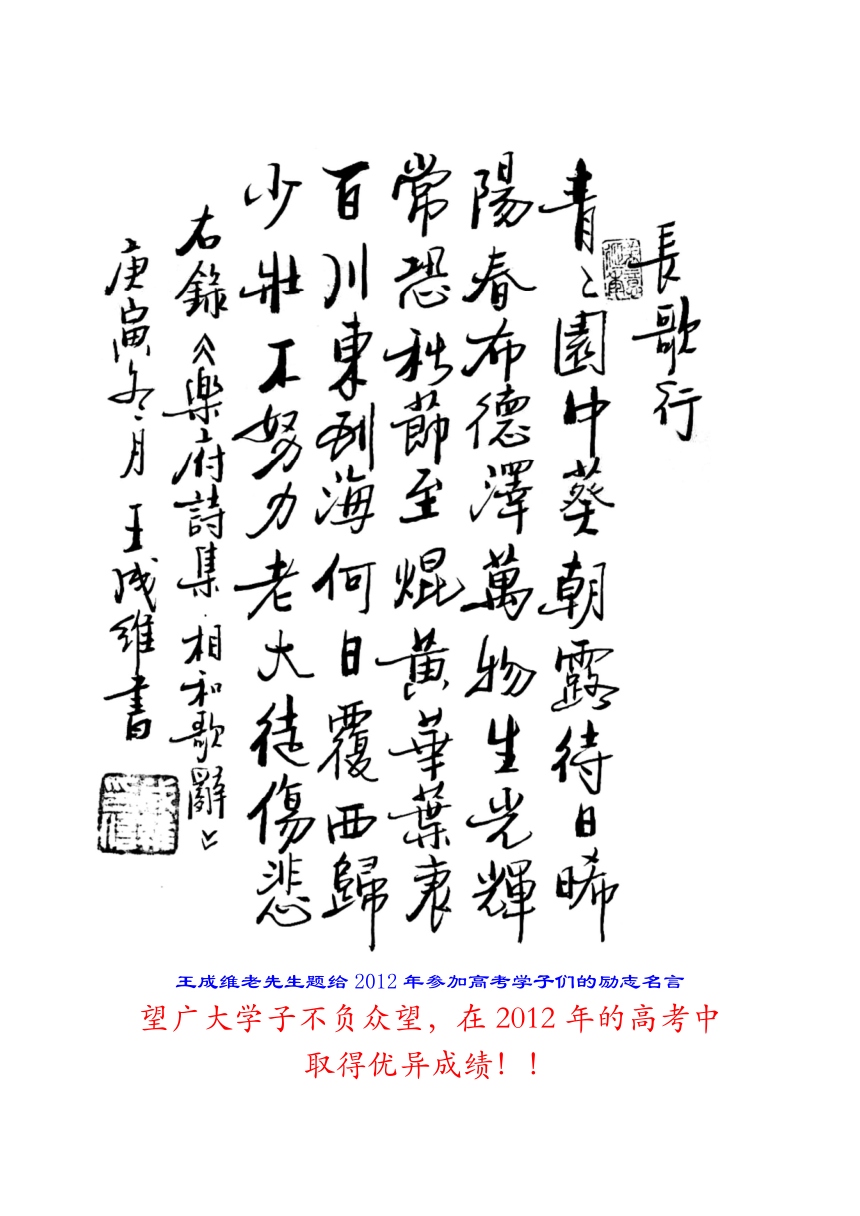 長歌行
青々園中葵朝露待日晞
陽春布德澤萬物生光輝
常恐秋節至焜黃華葉衰
百川東到海何日覆西歸
少壯不努力老大徒傷悲
右錄《樂府詩集·相和歌辭》
庚寅冬月王成维書
王成维老先生题给2012年参加高考学子们的励志名言
望广大学子不负众望，在2012年的高考中
取得优异成绩！！